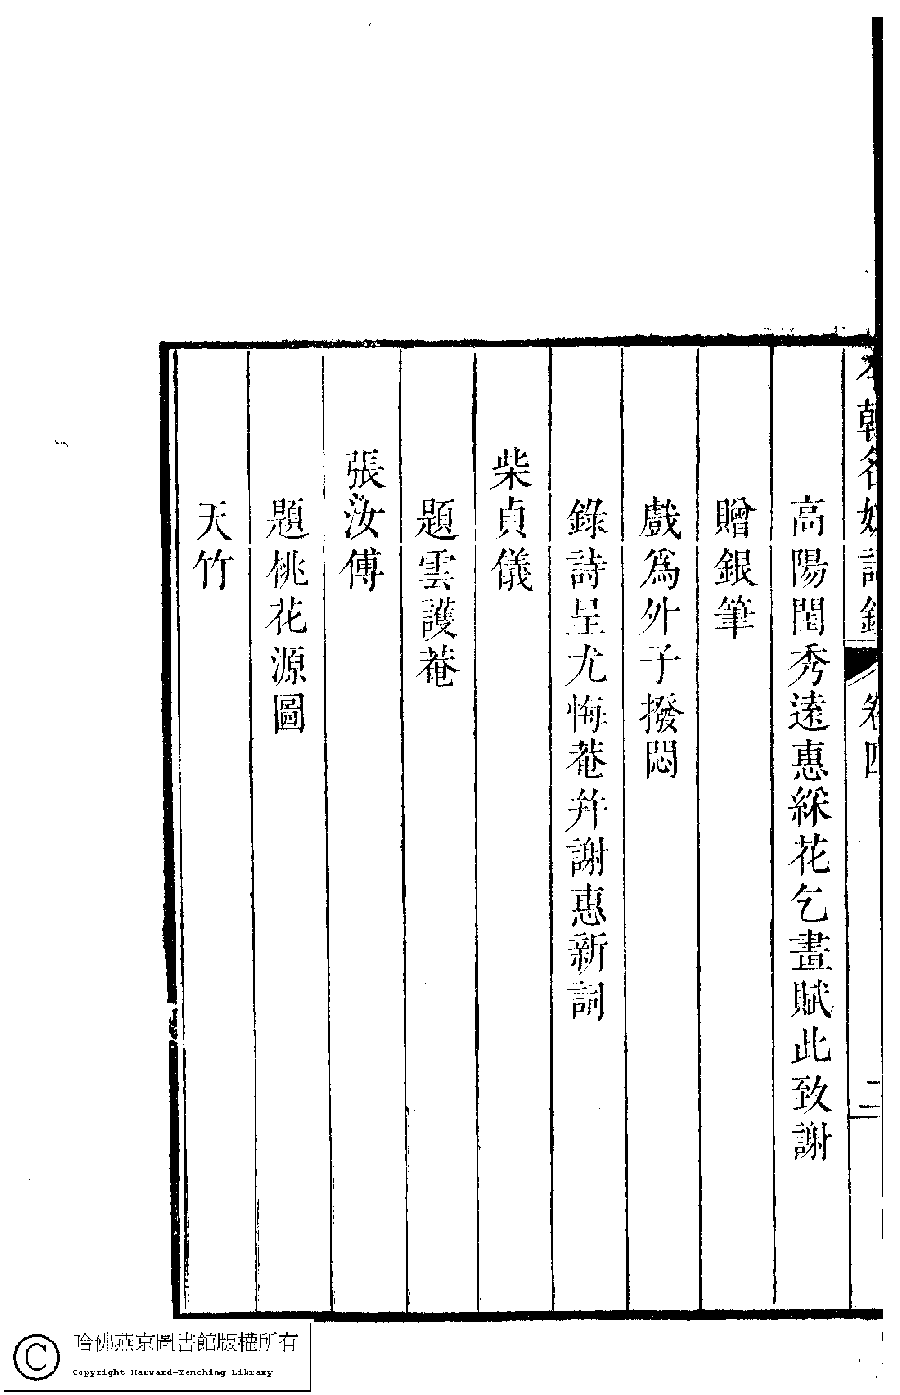 本朝名媛詩鈔 卷四 二
高陽閨秀遠惠綵花乞畫賦此致謝
贈銀筆
戲爲外子撥悶
錄詩呈尤悔菴幷謝惠新詞
柴貞儀
題雲護菴
張汝傅
題桃花源圖
天竹
哈佛燕京圖書館版權所有
Copyright Harvard-Yenching Library